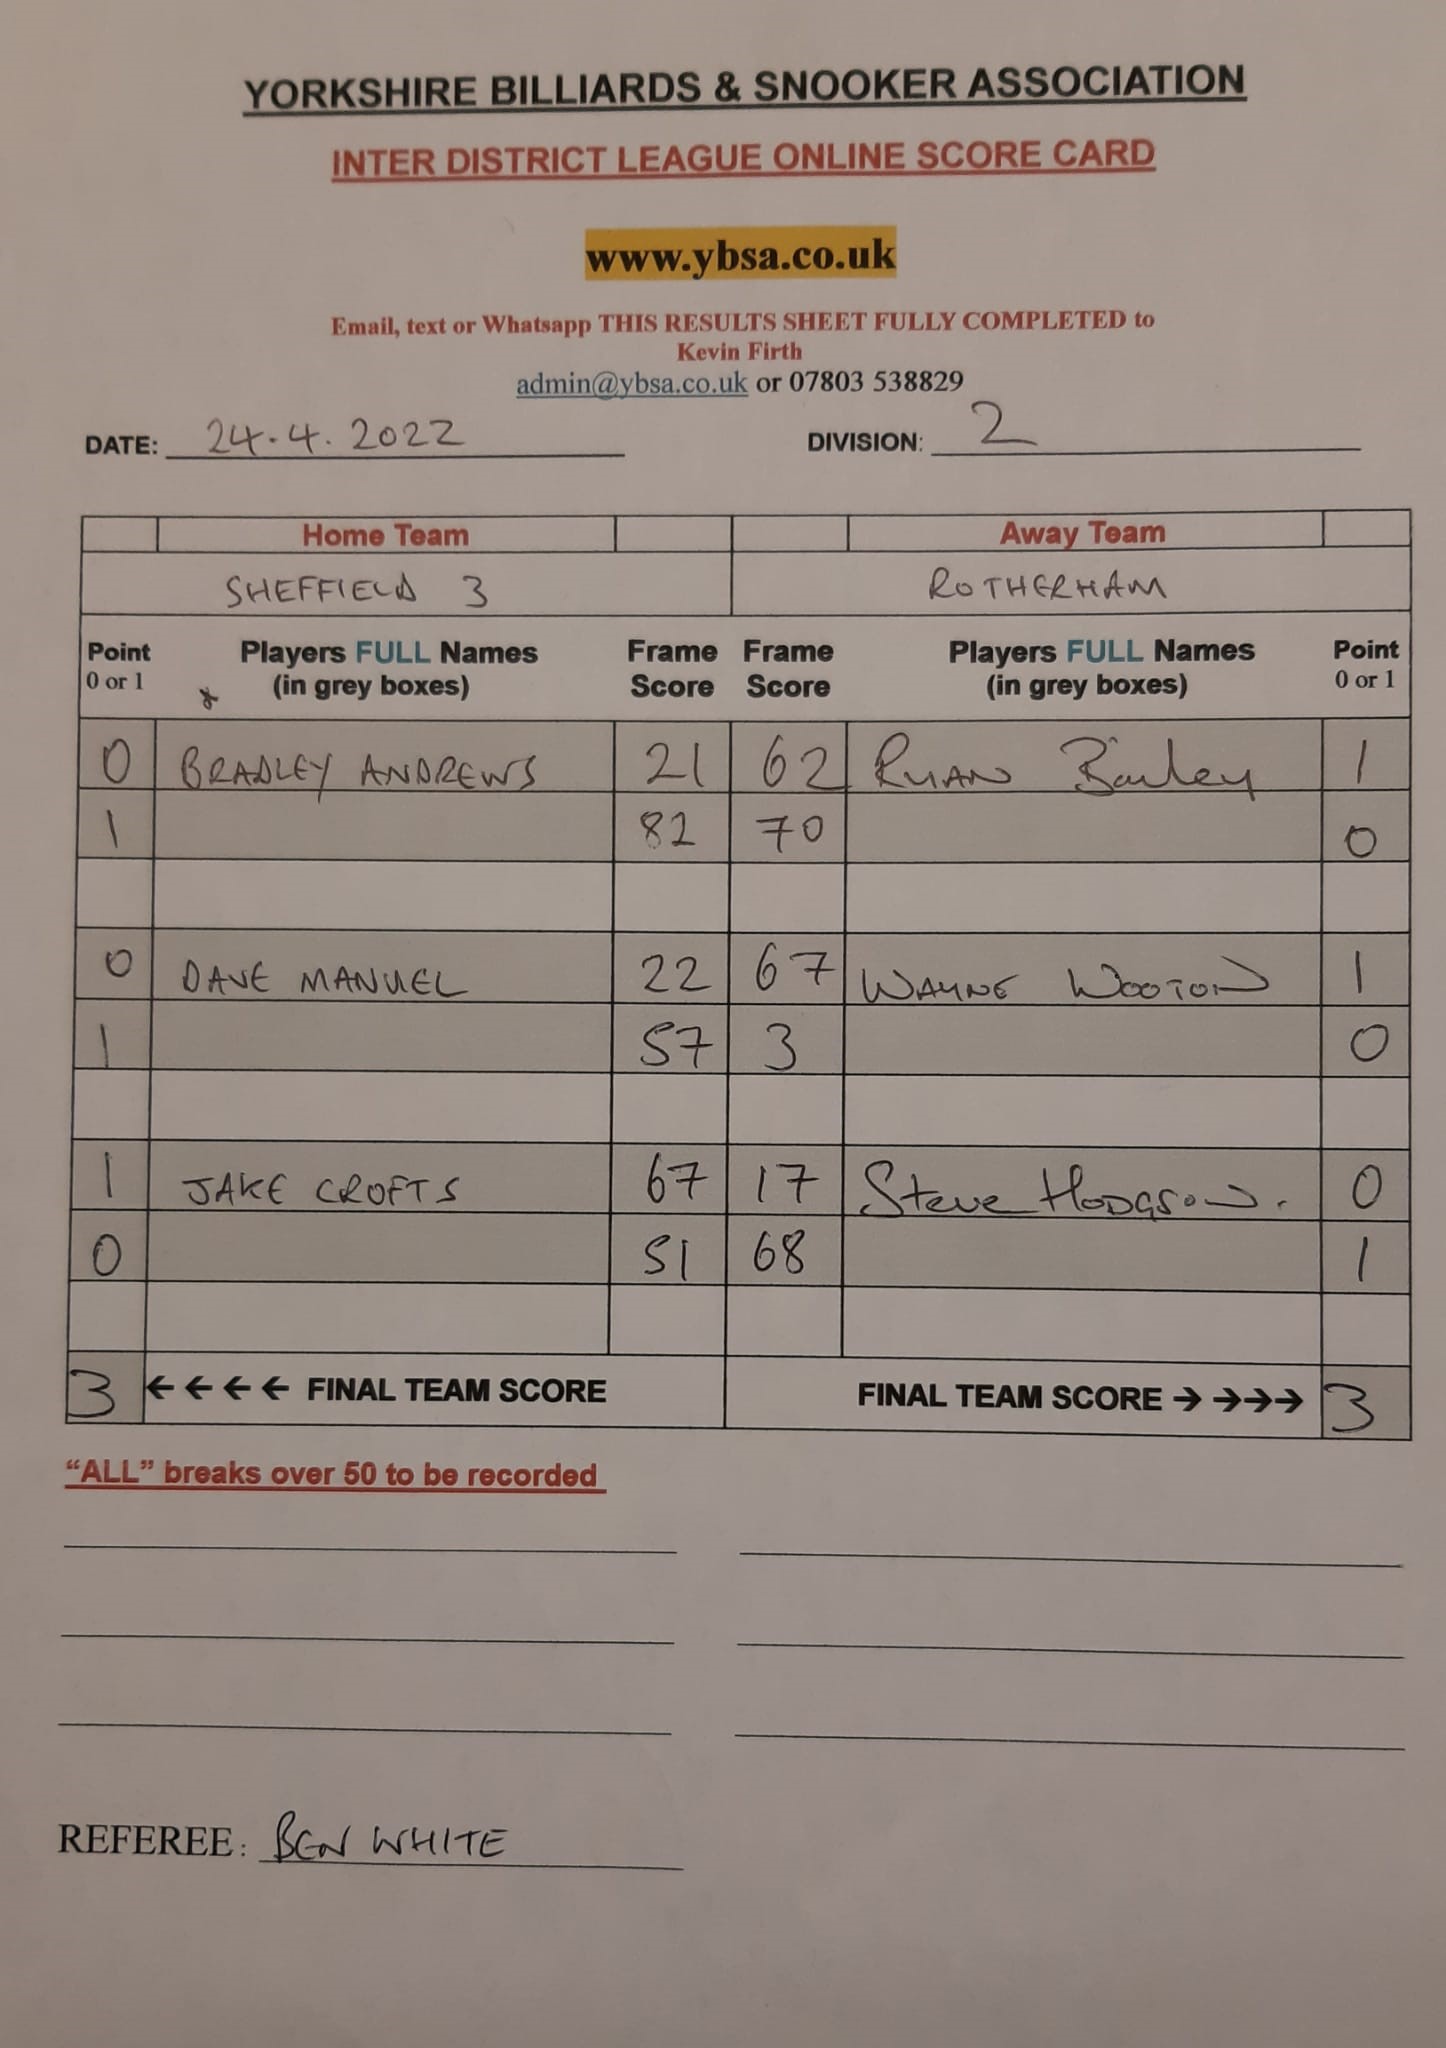 YORKSHIRE BILLIARDS & SNOOKER ASSOCIATION
INTER DISTRICT LEAGUE ONLINE SCORE CARD
www.ybsa.co.uk
Email, text or Whatsapp THIS RESULTS SHEET FULLY COMPLETED to
Kevin Firth
admin@ybsa.co.uk or 07803 538829
DATE: 24.4.2022 DIVISION: 2
Home Team Away Team
SHEFFIELD 3 ROTHERHAM
Point Players FULL Names Frame Frame Players FULL Names Point
0 or 1 * (in grey boxes) Score Score (in grey boxes) 0 or 1
0 BRADLEY ANDREWS 21 62 RYAN Bailey 1
1 82 70 0
0 DAVE MANUEL 22 67 WAYNE WOOTON 1
1 57 3 0
1 JAKE CROFTS 67 17 Steve HODGSON. 0
0 51 68 1
3 ←←←← FINAL TEAM SCORE FINAL TEAM SCORE → →→→ 3
“ALL” breaks over 50 to be recorded
REFEREE: BEN WHITE